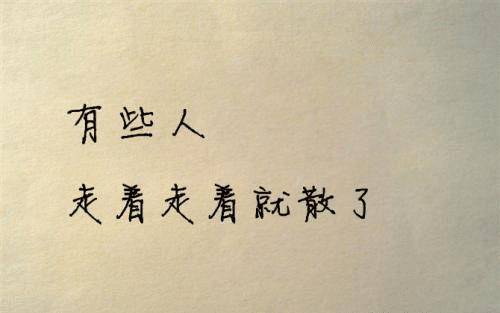 有些人
走着走着就散了